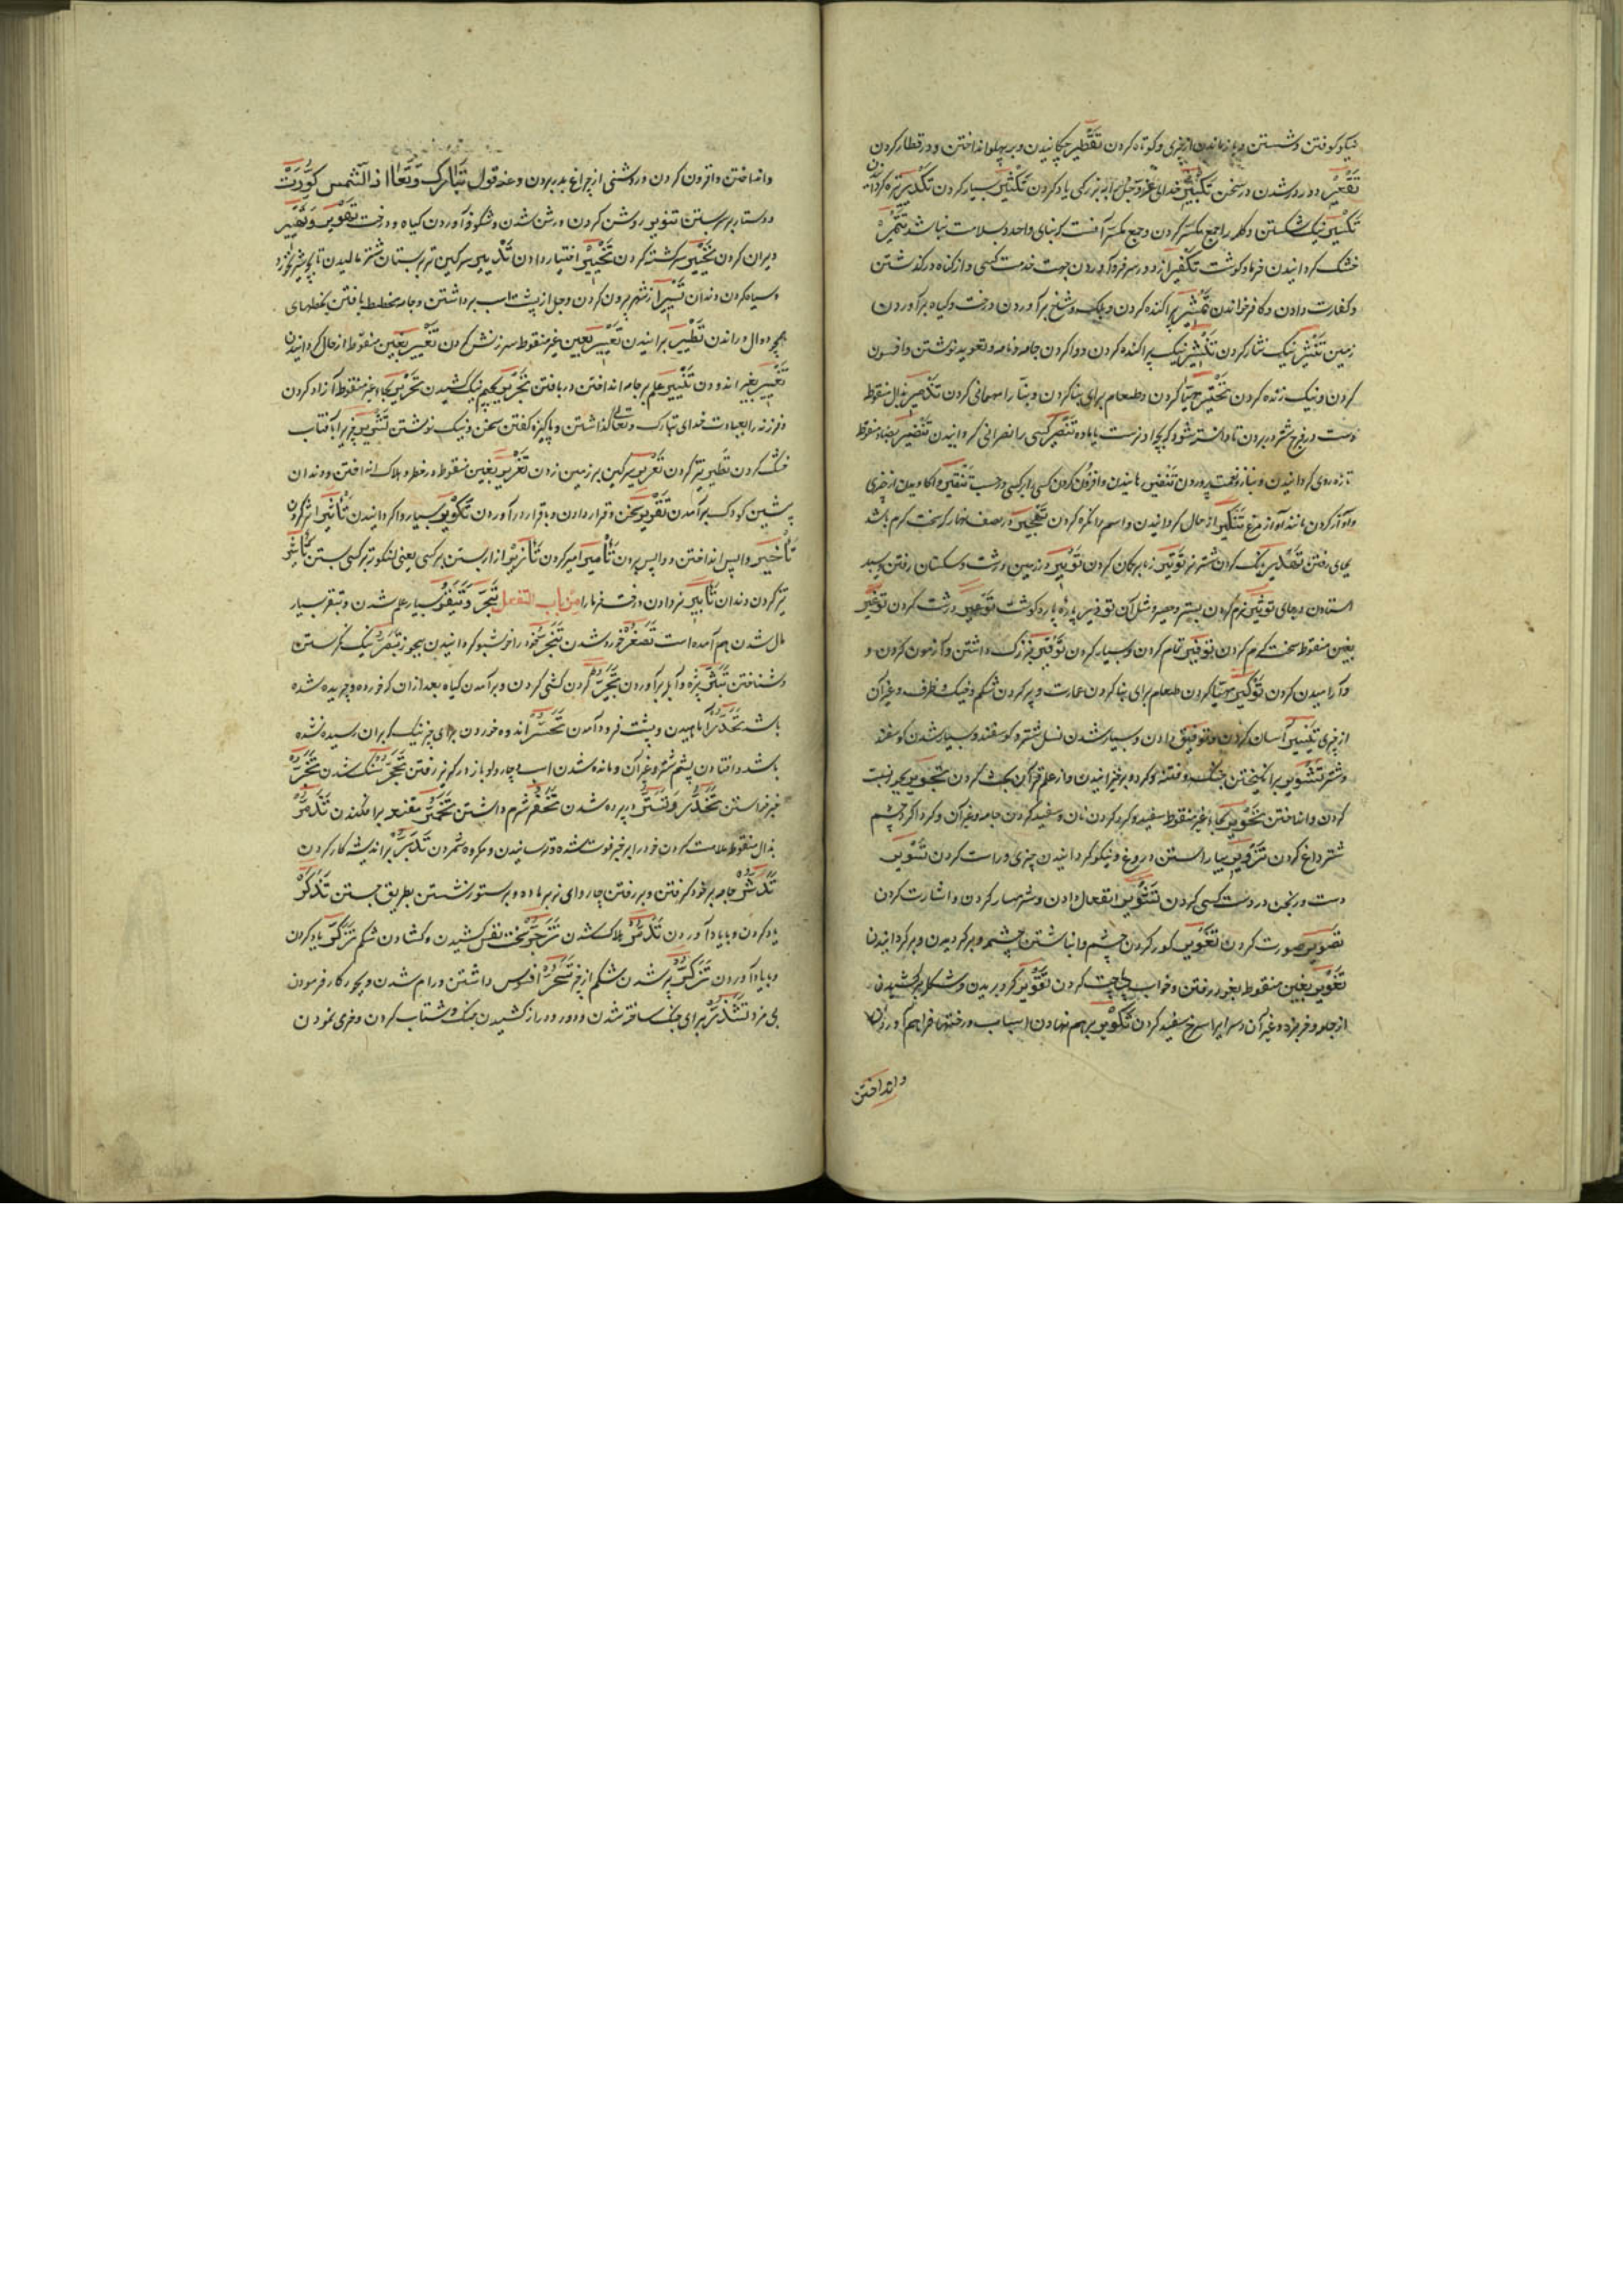 نیکو کوفتن و شستن و بازماندن از چیزی و کوتاه کردن تَقْطِیر چکانیدن و بر پهلو انداختن و در قطار کردن
تَقْعِیْر دور در شدن در سخن تَکْبِیْر خدای عزّ و جلّ را به بزرگی یاد کردن تَکْثِیْر بسیار کردن تَکْدِیر تیره گردانیدن
تَکْسِیْر نیک شکستن و کلمه را جمع مکسّر کردن و جمع مکسّر آنست که بنای واحد و بسلامت نباشد تَتْمِیْر
خشک گردانیدن خرما و گوشت تَکْفِیْر از دو در سر فرود آوردن جهت خدمت کسی و از گناه در گذشتن
و کفارت دادن و کافر خواندن پراکنده کردن و برگ و شاخ برآوردن درخت و گیاه برآوردن
زمین تَنْثِیْر نیک نثار کردن تَنْشِیْر نیک پراکنده کردن و وا کردن جامه و نامه و تعویذ نوشتن و افسون
کردن و نیک زنده کردن مهیّا کردن و طعام برای بنا کردن و بنّا را مهمانی کردن بذال منقوط
دست در فرج شتر در بردن تا دانسته شود که بچه او نرست یا ماده تَنْصِیْر کسی را نصرانی گردانیدن تَنْضِیْر بضاد منقوط
تازه روی گردانیدن و بناز و نعمت پروردن تَنْفِیْر رمانیدن و افزون کردن کسی را بر کسی در حسب تَنْقِیْر وا کاویدن از چیزی
و آواز کردن مانند آواز مرغ تَنْکِیْر از حال گردانیدن و اسم را نکره کردن تَهْجِیْر در نصف نهار که سخت گرم باشد
بجای رفتن تَهْدِیْر بانگ کردن شتر نر تَوْتِیْر زه بر کمان کردن در زمین درشت و سنگستان رفتن و سپید
استادن بر جای تَوْثِیْر نرم کردن بستر و حصیر و مثل آن پاره پاره کردن گوشت تَوْعِیْر درشت کردن تَوْغِیْر
بغین منقوط سخت گرم کردن تَوْفِیْر تمام کردن و بسیار کردن تَوْقِیْر بزرگ داشتن و آزمون کردن و
و آرامیدن کردن تَوْکِیْر مهیّا کردن طعام برای بنا کردن عمارت و پر کردن شکم و خیک و ظرف و غیر آن
از چیزی تَیْسِیْر آسان کردن و توفیق دادن و بسیار شدن نسل شتر و گوسفند و بسیار شدن گوسفند
و شتر تَثْوِیْر برانگیختن جنگ و فتنه و گرد و برخیزانیدن و از علم قرآن بحث کردن تَجْوِیْر بجور نسبت
کردن و انداختن تَحْوِیْر بحاء غیر منقوط سفید و گرد کردن نان و سفید کردن جامه و غیر آن و گرداگرد چشم
شتر داغ کردن تَزْوِیْر بیاراستن دروغ و نیکو گردانیدن چیزی و راست کردن تَسْوِیْر
دست ورنجن در دست کسی کردن تَشْوِیْر انفعال دادن و شرمسار کردن و اشارت کردن
تَصْوِیْر صورت کردن تَعْوِیْر کور کردن چشم و انباشتن چشمه و برگردیدن و برگردانیدن
تَغْوِیْر بغین منقوط بغور رفتن و خواب چاشت کردن تَقْوِیْر گرد بریدن و شکل برکشیدن
از جامه و خربزه و غیر آن و سرایرا سرخ سفید کردن تَکْوِیْر بر هم نهادن اسباب و رختها فراهم آوردن
و انداختن
و انداختن و افزون کردن و روشنی از چراغ بدر بردن و عند قول تَبَارَکَ وَتَعَالَی اذ الشّمس کوّرت
و دستار بر سر بستن تَنْوِیْر روشن کردن و روشن شدن و شکوفه آوردن گیاه و درخت تَهْوِیر
ویران کردن سرگشته کردن تَخْیِیْر اختیار دادن سرگین تر بر پستان شتر مالیدن تا بچه شیر نخورد
و سیاه کردن دندان تَسْیِیْر از شهر بیرون کردن و جل از پشت اسب برداشتن و جامه مخطط بافتن بخطهای
همچو دوال و راندن تَطْیِیْر پرانیدن تَعْیِیْر بعین غیر منقوط سرزنش کردن تَغْیِیْر بغین منقوط از حال گردانیدن
اندودن علم بر جامه انداختن و بافتن تَجْرِیر بجیم نیک کشیدن تَحْرِیْر بحاء غیر منقوط آزاد کردن
و فرزند را بعبادت خدای تبارک و تعالی گذاشتن و پاکیزه گفتن سخن و نیک نوشتن چیزی را بآفتاب
خشک کردن تیز کردن سرگین بر زمین زدن تَغْرِیر بغین منقوط در خطر و هلاک انداختن و دندان
پیشین کودک برآمدن تَقْرِیر سخن و قرار دادن و باقرار در آوردن تَکْرِیر بسیار وا گردانیدن تَأثِیر اثر کردن
تَأخِیر واپس انداختن و واپس بردن تَأمِیر امیر کردن تَأزِیر ازار بستن بر کسی یعنی لنگوته بر کسی بستن تَأشِیر
تیز کردن دندان تَأبِیر بر دادن درخت خرما را مِن باب التفعل تَبَحُّر وَتَبَقُّر بسیار علم شدن و تبقر بسیار
مال شدن هم آمده است تَصَغُّر خورد شدن تَبَخُّر خود را خوشبو گردانیدن ببخور تَبَصُّر نیک نگریستن
و شناختن و آبله برآوردن تَجَبُّر گردن کشی کردن و برآمدن گیاه بعد از آن که خورده و چریده شده
باشد تَحَدُّر آماهیدن و پشت فرود آمدن تَحَسُّر اندوه خوردن برای چیزیکه بران رسیده نشده
باشد و افتادن پشم شتر و غیر آن و مانده شدن اسپ و چارواو باز در گریز رفتن تَحَجُّر سنگ شدن تَخَبُّر
خبر خواستن تَخَدُّر وَتَسَتُّر در پرده شدن تَخَفُّر شرم داشتن تَخَمُّر مقنعه برافکندن تَذَمُّر
بذال منقوط ملامت کردن خود را بر چیز فوت شده و ترسانیدن و مکروه شمردن تَدَبُّر براندیشه کار کردن
تَدَثُّر جامه بر خود گرفتن و بر رفتن چاروای نر بر ماده و بر ستور نشستن بطریق جستن تَذَکُّر
یاد کردن و بیاد آوردن تَدَمُّر هلاک شدن تَزَحُّر سخت نفس کشیدن و گشادن شکم یاد کردن
و بیاد آوردن تَزَکُّر پر شدن شکم از چیزی تَسَخُّر افسوس داشتن و رام شدن و بجور کار فرمودن
بی مزد تَشَذُّر برای جنگ ساخته شدن و دور و دراز کشیدن جنگ و شتاب کردن و خری نمودن